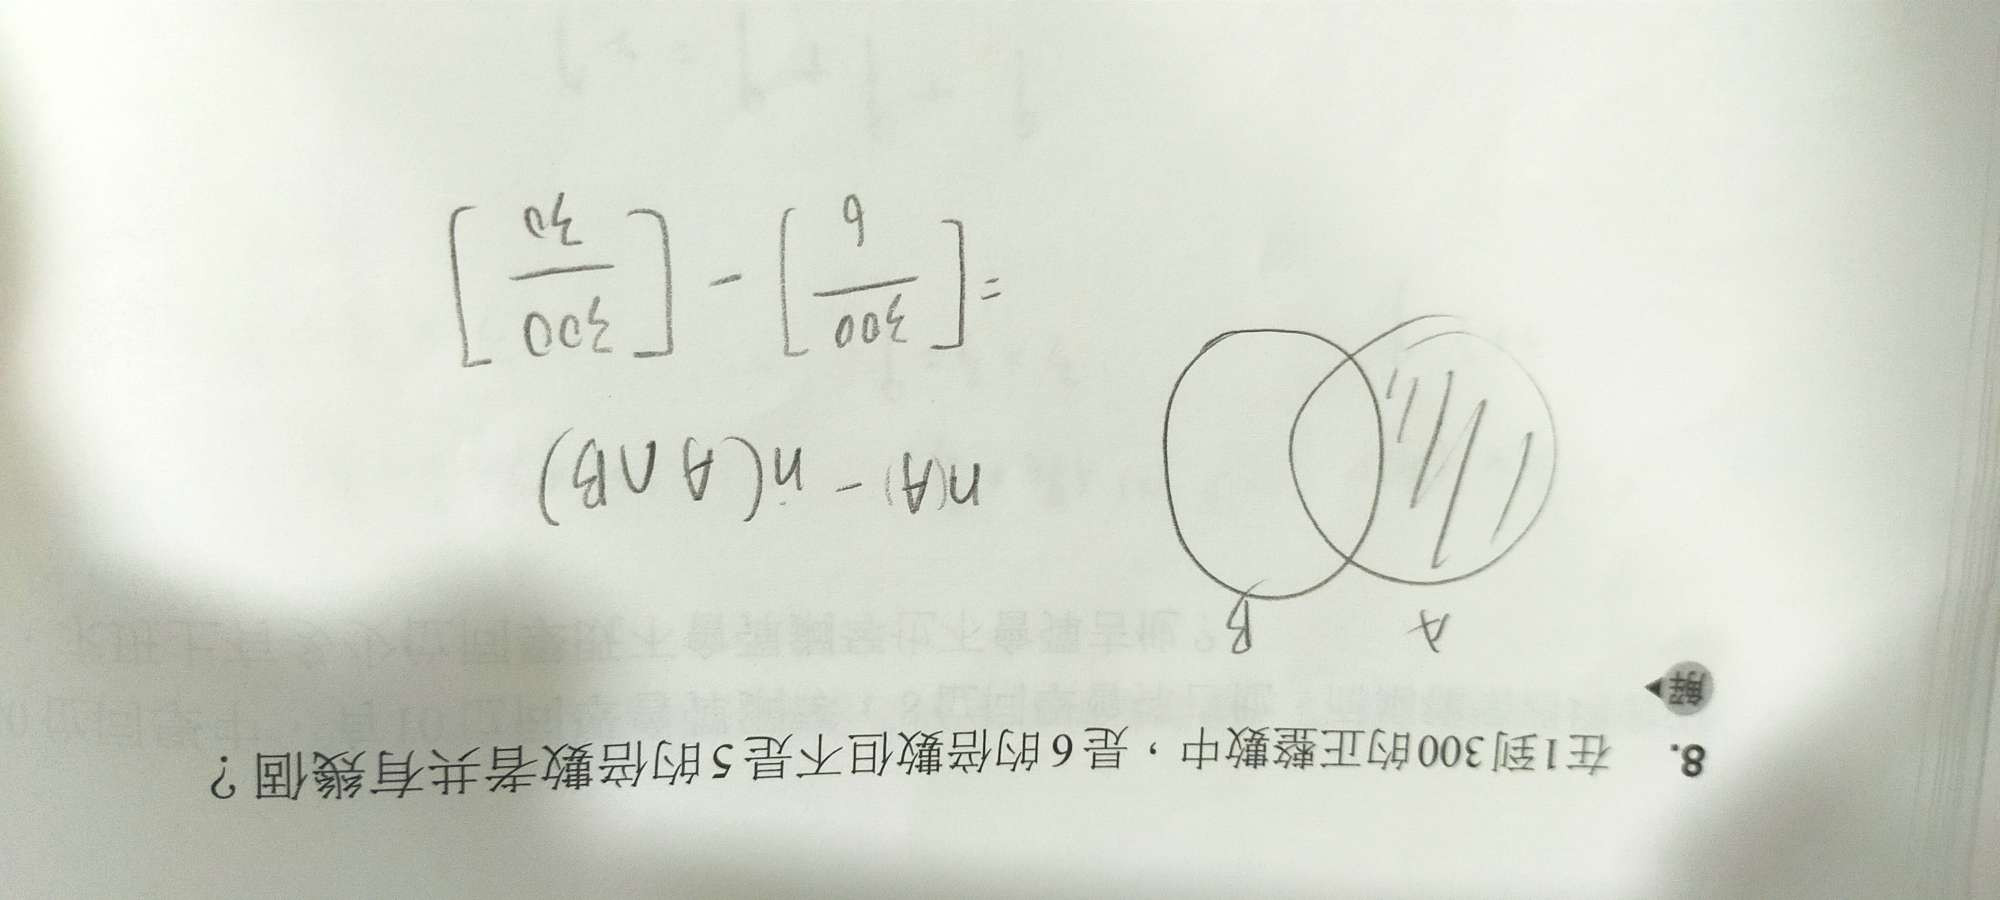 8. 在1到300的正整數中，是6的倍數但不是5的倍數者共有幾個？
解
A B
n(A) - n(A∩B)
= [300/6] - [300/30]